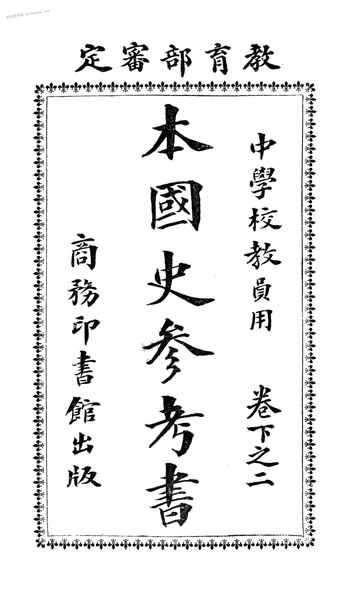 教育部審定
中學校教員用　卷下之二
本國史参考書
商務印書館出版